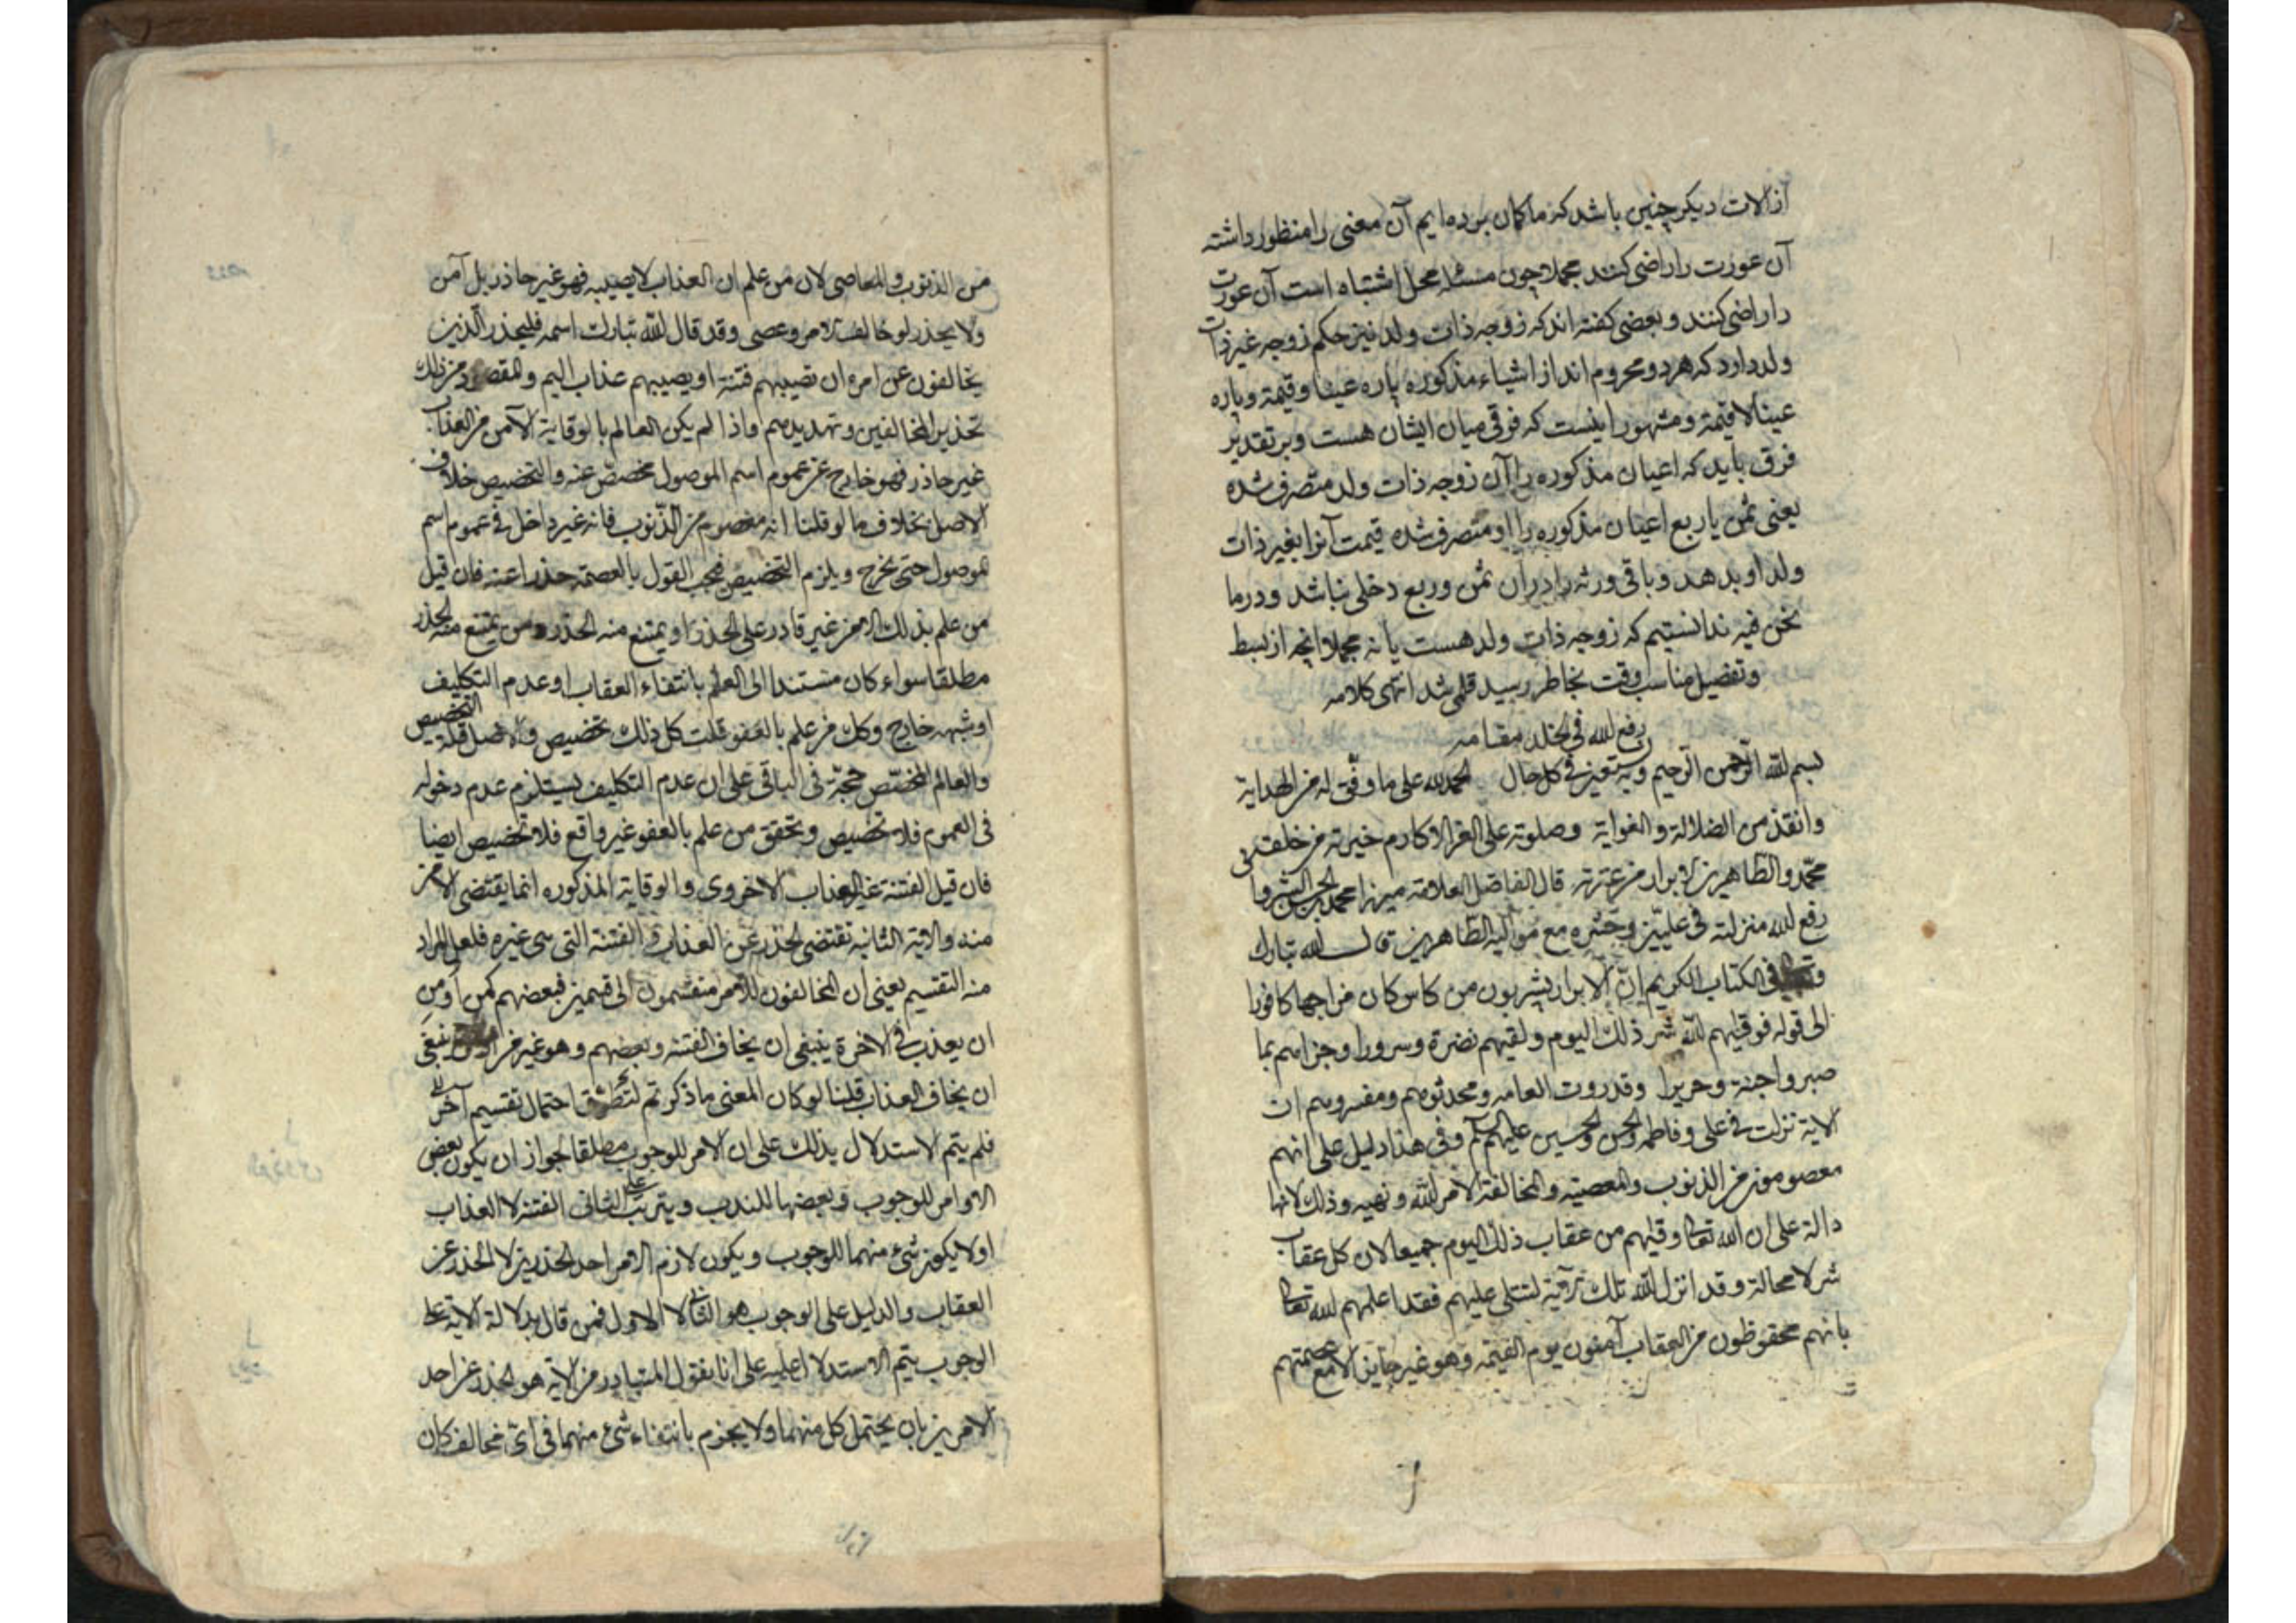 از آلات دیکر چنین باشد که ما کمان برده‌ایم آن معنی را منظور داشته
آن عورت را راضی کنند مجملا چون مسئله محل اشتباه است آن عورت
را راضی کنند و بعضی کفته اند که زوجه ذات ولد نیز حکم زوجه غیر ذات
ولد دارد که هر دو محروم اند از اشیاء مذکوره پاره عینا و قیمة و پاره
عینا لا قیمة و مشهور اینست که فرقی میان ایشان هست و بر تقدیر
فرق باید که اعیان مذکوره را آن زوجه ذات ولد متصرف شده
یعنی ثمن یا ربع اعیان مذکوره را او متصرف شده قیمت آنرا بغیر ذات
ولد او بدهد و باقی ورثه را در آن ثمن و ربع دخلی نباشد و در ما
نحن فیه ندانستیم که زوجه ذات ولد هست یا نه مجملا انچه از بسط
و تفصیل مناسب وقت بخاطر رسید قلمی شد انتهی کلامه
رفع الله فی الخلد مقامه
بسم الله الرحمن الرحیم وبه نستعین فی کل حال الحمد لله علی ما وفق له من الهدایة
وانقذ من الضلالة والغوایة وصلوته علی الغر الاکارم خیرته من خلقه
محمد والطاهرین الابرار من عترته قال الفاضل العلامة میرزا محمد بن الحسن الشروانی
رفع الله منزلته فی علیین وحشره مع موالیه الطاهرین قال الله تبارک
وتعالی فی الکتاب الکریم ان الابرار یشربون من کاس کان مزاجها کافورا
الی قوله فوقیهم الله شر ذلک الیوم ولقیهم نضرة وسرورا وجزاهم بما
صبروا جنة وحریرا وقد روت العامه ومحدثوهم ومفسروهم ان
الایة نزلت فی علی وفاطمه والحسن والحسین علیهم وفی هذا دلیل علی انهم
معصومون من الذنوب والمعصیة والمخالفة لامر الله ونهیه وذلک لانها
دالة علی ان الله تعا وقیهم من عقاب ذلک الیوم جمیعا لان کل عقاب
شر لا محالة وقد انزل الله تلک الآیة لتتلی علیهم فقد اعلمهم الله تعا
بانهم محفوظون من العقاب آمنون یوم القیمة وهو غیر جایز الا مع عصمتهم
من الذنوب والمعاصی لان من علم ان العذاب لا یصیبه فهو غیر حاذر بل آمن
ولا یحذر لو خالف الامر وعصی وقد قال الله تبارک اسمه فلیحذر الذین
یخالفون عن امره ان تصیبهم فتنة او یصیبهم عذاب الیم والمقصود من ذلک
تحذیر المخالفین وتهدیدهم واذا لم یکن العالم بالوقایة الآمن من العذاب
غیر حاذر فهو خارج عن عموم اسم الموصول مخصص عنه والتخصیص خلاف
الاصل بخلاف ما لو قلنا انه معصوم من الذنوب فانه غیر داخل فی عموم اسم
الموصول حتی یخرج ویلزم التخصیص فیجب القول بالعصمة حذرا عنه فان قیل
من علم بذلک الامر غیر قادر علی الحذر او یمتنع منه الحذر ومن یمتنع منه الحذر
مطلقا سواء کان مستندا الی العلم بانتفاء العقاب او عدم التکلیف
او شبهه خارج وکل من علم بالعفو قلت کل ذلک تخصیص والاصل قلة التخصیص
والعالم المختص حجة فی الباقی علی ان عدم التکلیف یستلزم عدم دخوله
فی العموم فلا تخصیص وتحقق من علم بالعفو غیر واقع فلا تخصیص ایضا
فان قیل الفتنة غیر العذاب الاخروی والوقایة المذکوره انما یقتضی الامن
منه والایة الثانیه تقتضی الحذر عن العذاب والفتنة التی هی غیره فلعل المراد
منه التقسیم یعنی ان المخالفون للامر منقسمون الی قسمین فبعضهم کمن اومن
ان یعذب فی الاخرة ینبغی ان یخاف الفتنه وبعضهم وهو غیر من ینبغی
ان یخاف العذاب قلنا لو کان المعنی ما ذکرتم لتطرق احتمال تقسیم آخر
فلم یتم الاستدلال بذلک علی ان الامر للوجوب مطلقا لجواز ان یکون بعض
الاوامر للوجوب وبعضها للندب ویترتب علی الثانی الفتنة لا العذاب
او لا یکون شیء منهما للوجوب ویکون لازم الامر احد الحذرین لا الحذر عن
العقاب والدلیل علی الوجوب هو الثانی لا الاول فمن قال بدلالة الایة علی
الوجوب یتم الاستدلال علیه علی انا نقول المتبادر من الایة هو الحذر عن احد
الامرین بان یحتمل کل منهما ولا یجزم بانتفاء شیء منهما فی ای مخالف کان